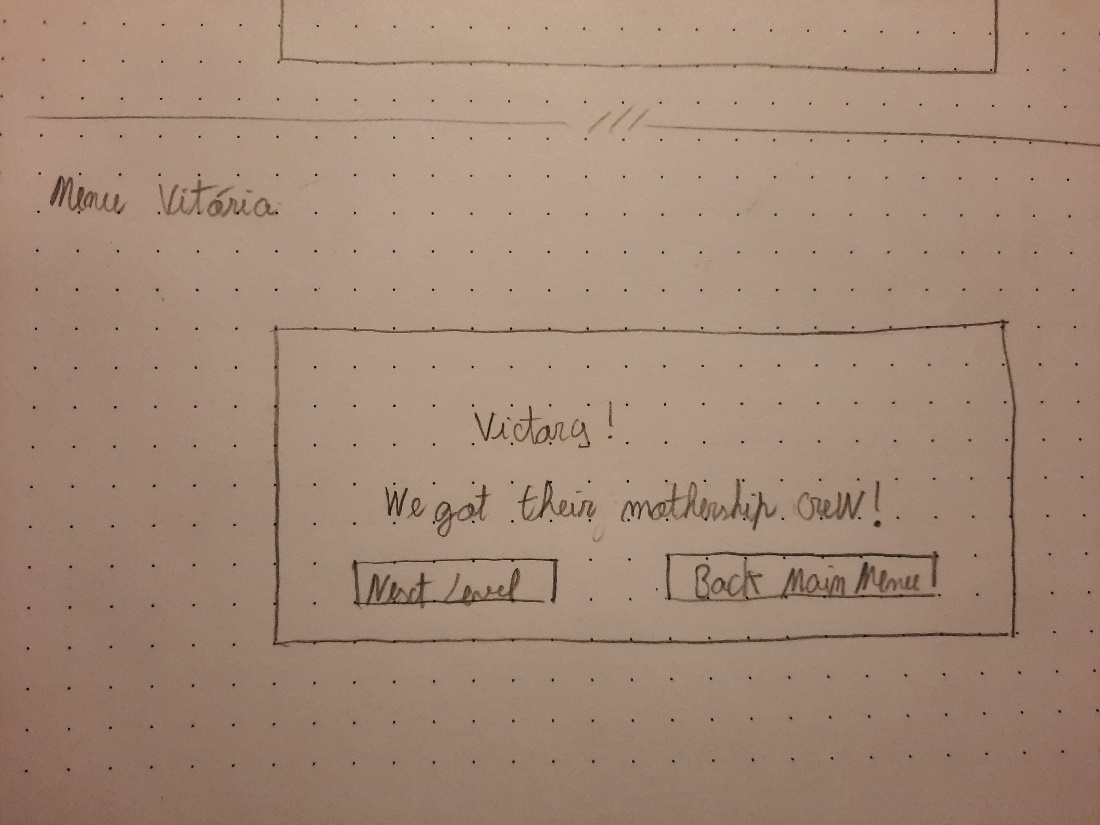 Menu Vitória
Victory!
We got their mothership crew!
Next Level
Back Main Menu